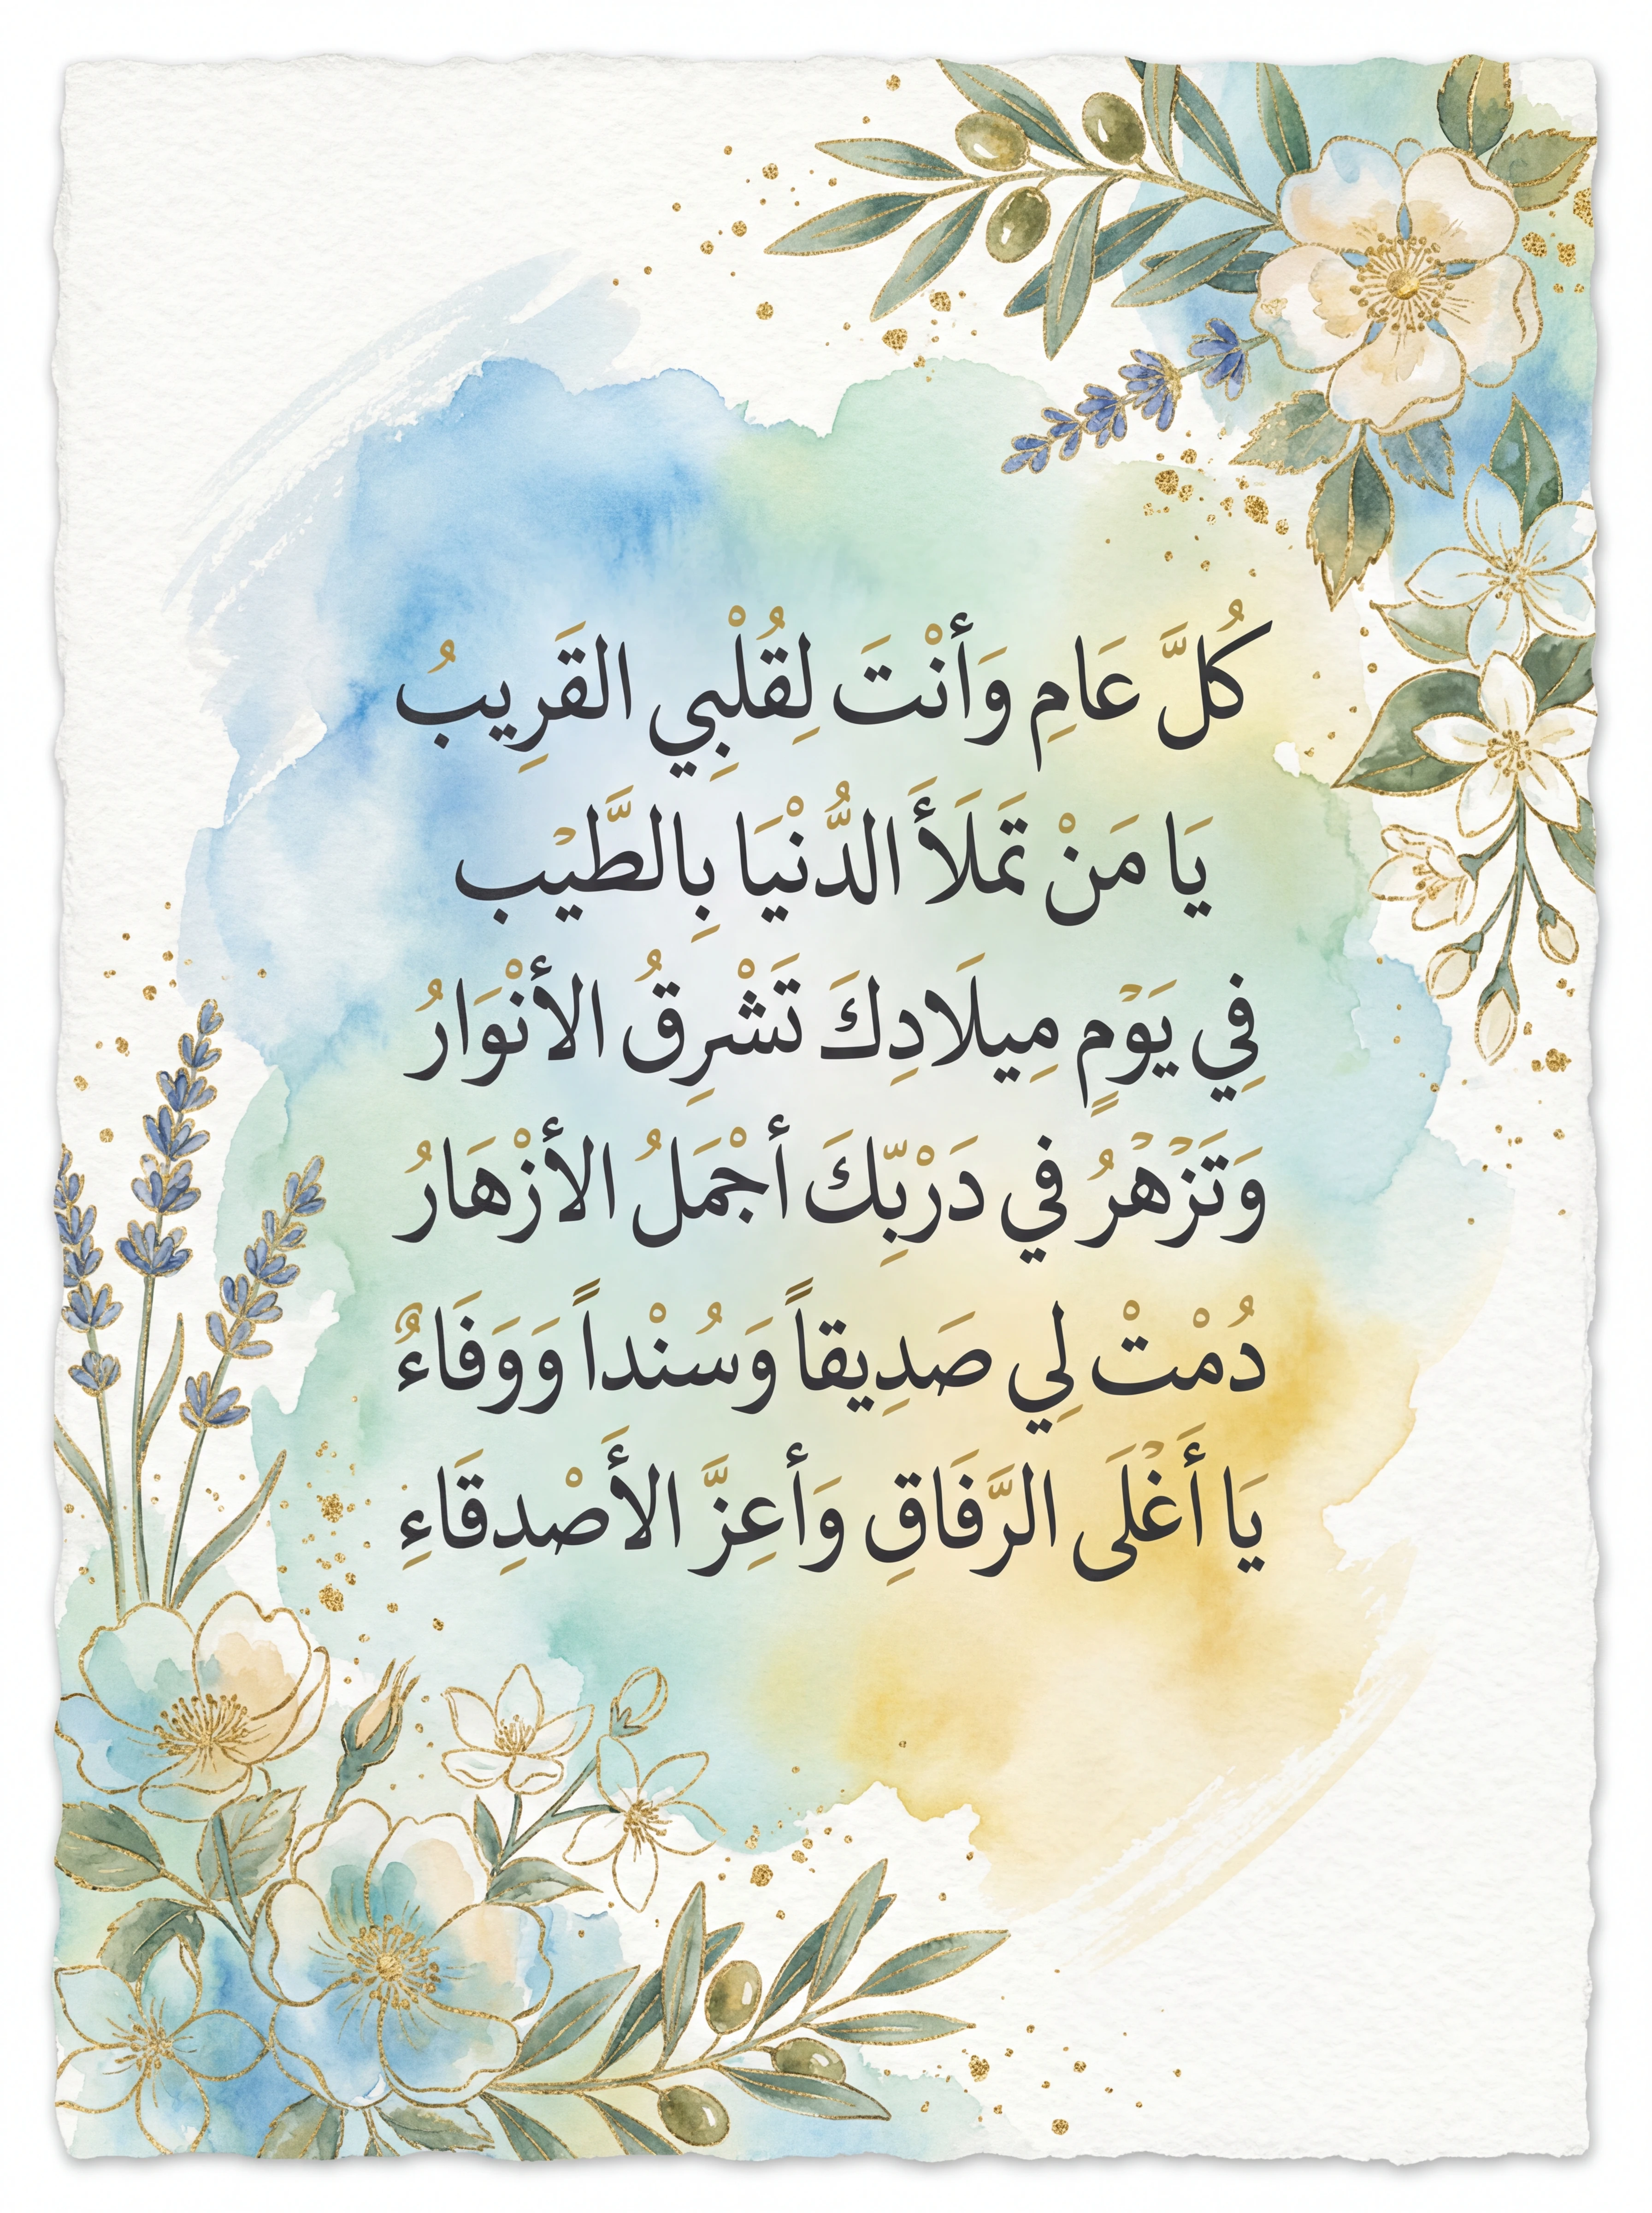 كُلَّ عَامِ وَأنْتَ لِقُلْبِي القَرِيبُ
يَا مَنْ تَملَأَ الدُّنْيَا بِالطَّيْب
فِي يَوْمٍ مِيلَادِكَ تَشْرِقُ الأنْوَارُ
وَتَزْهْرُ في دَرْبِّكَ أجْمَلُ الأزْهَارُ
دُمْتْ لِي صَدِيقاً وَسُنْداً وَوَفَاءٌ
يَا أَغْلَى الرَّفَاقِ وَأعِزَّ الأَصْدِقَاءِ